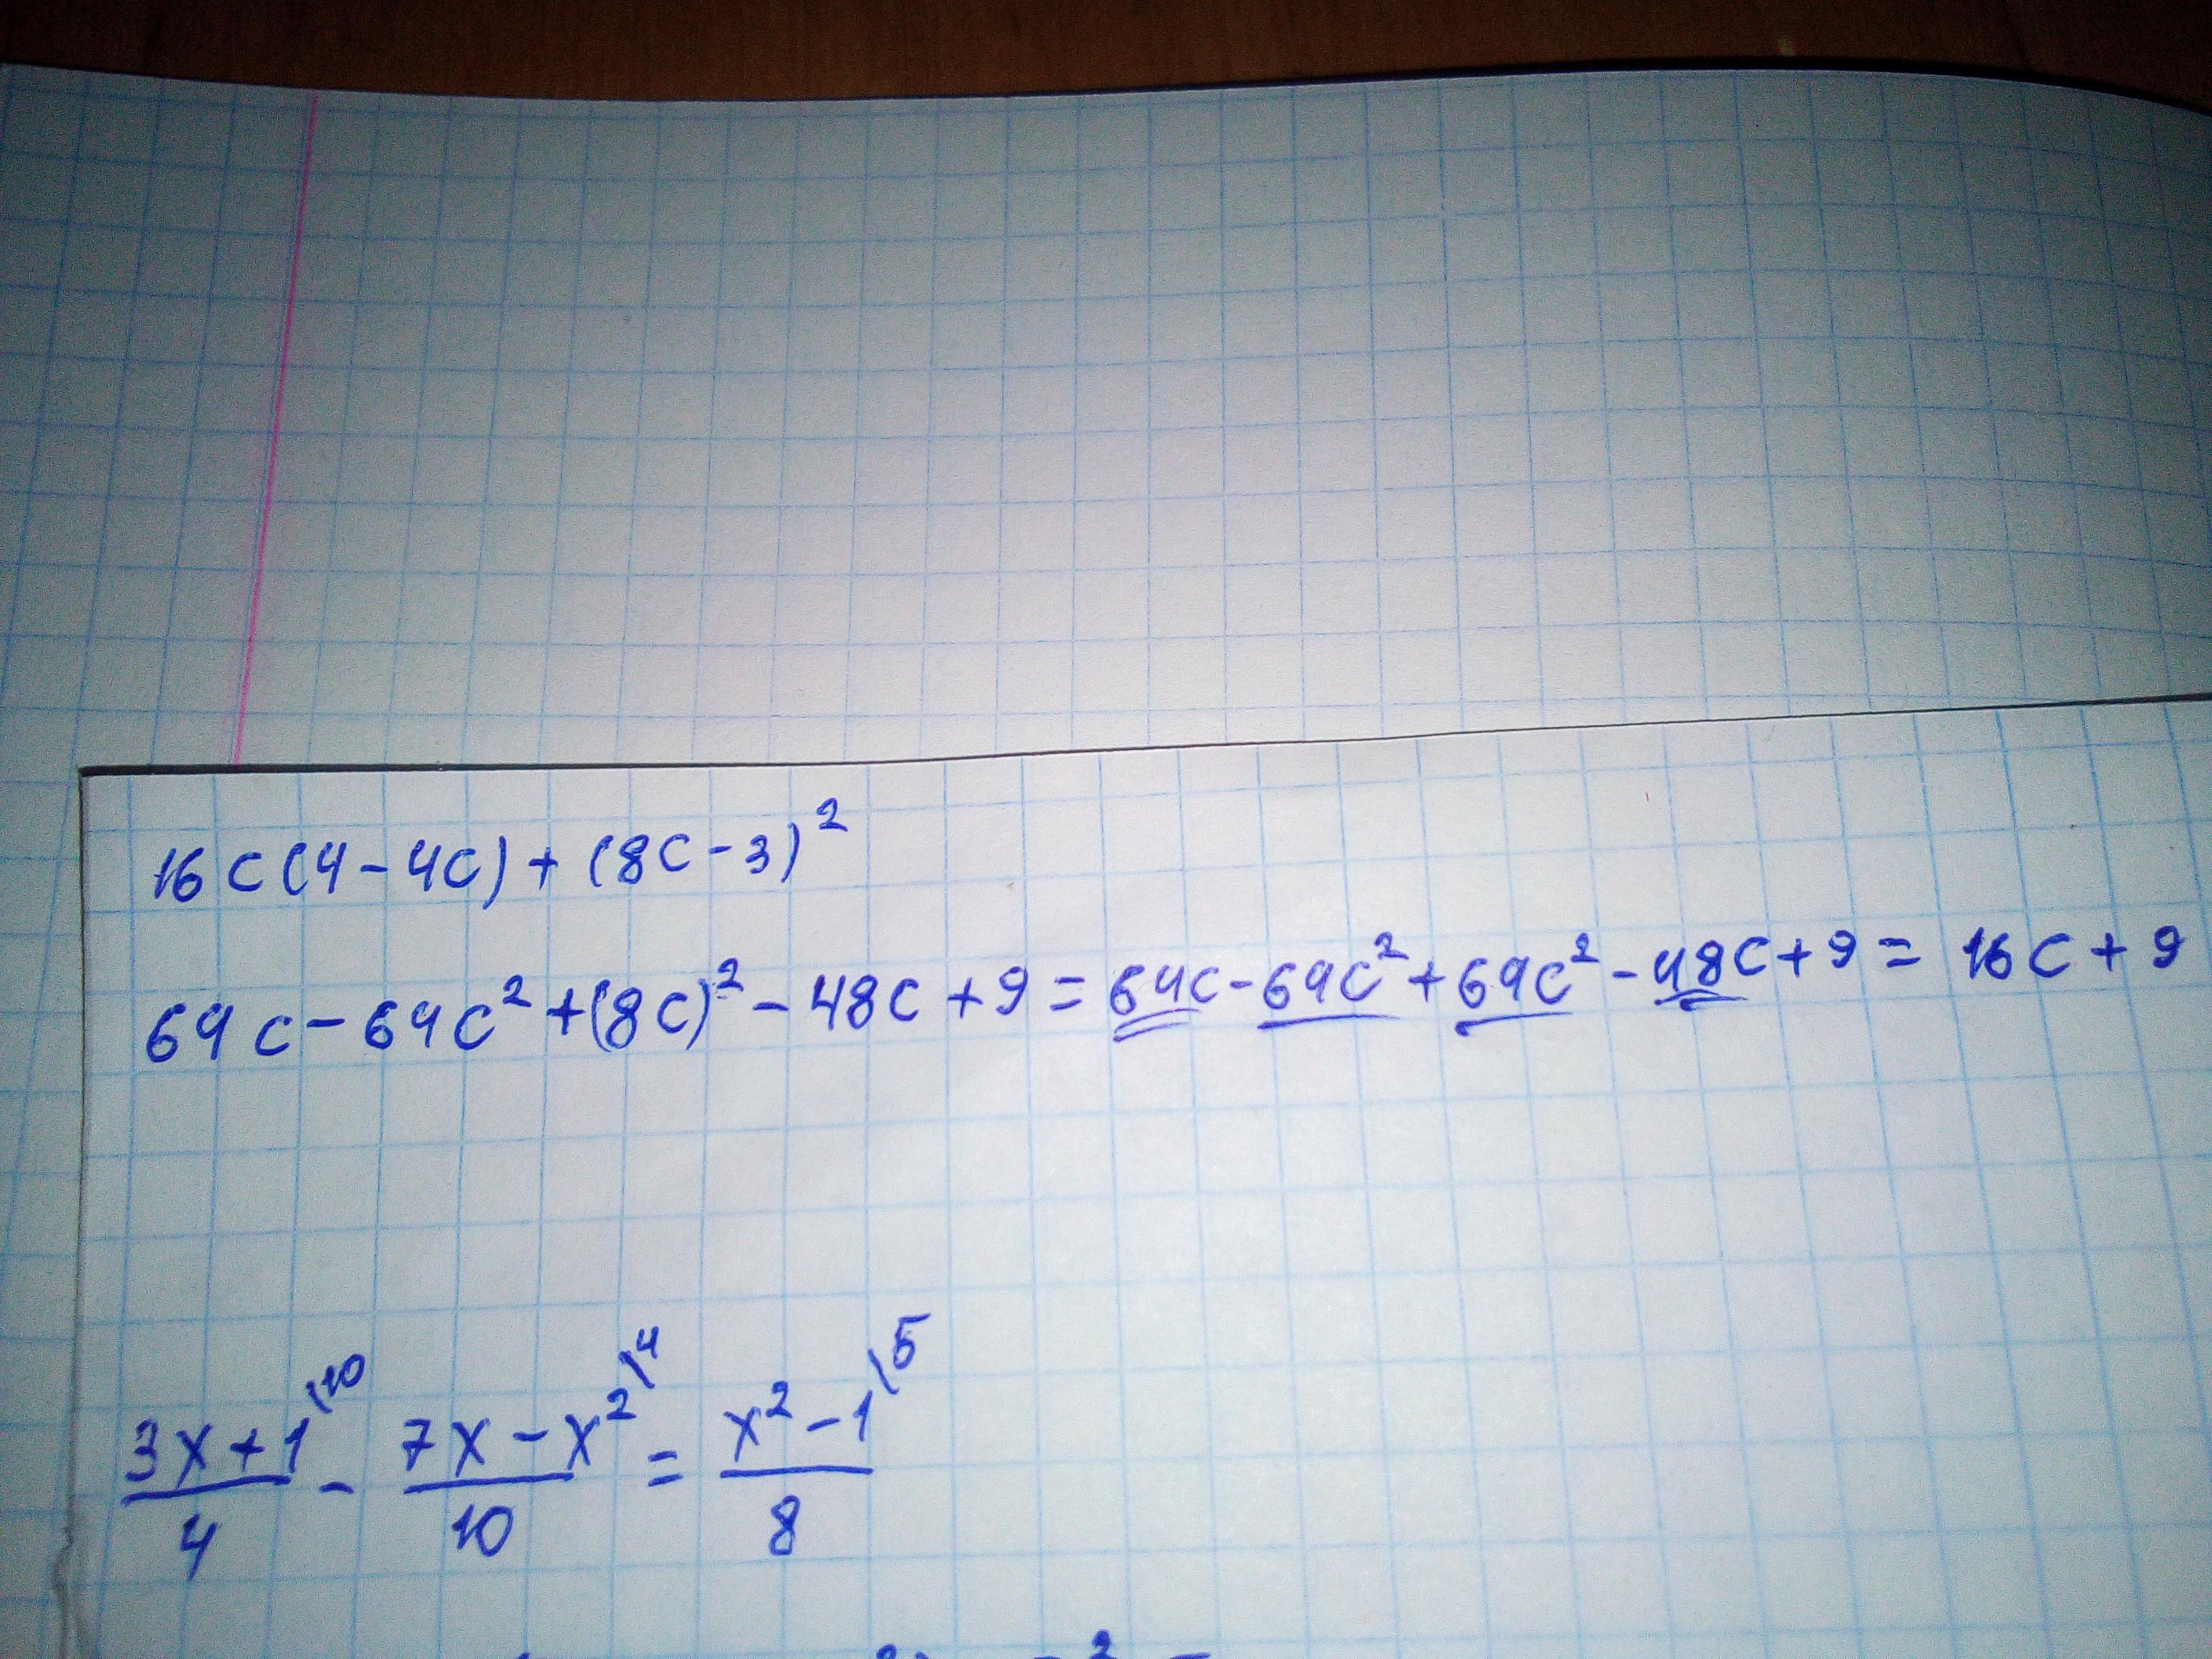 16c(4-4c)+(8c-3)²
64c-64c²+(8c)²-48c+9=64c-64c²+64c²-48c+9=16c+9
3x+1\10 7x-x²\4 x²-1\5
— - — = —
4 10 8